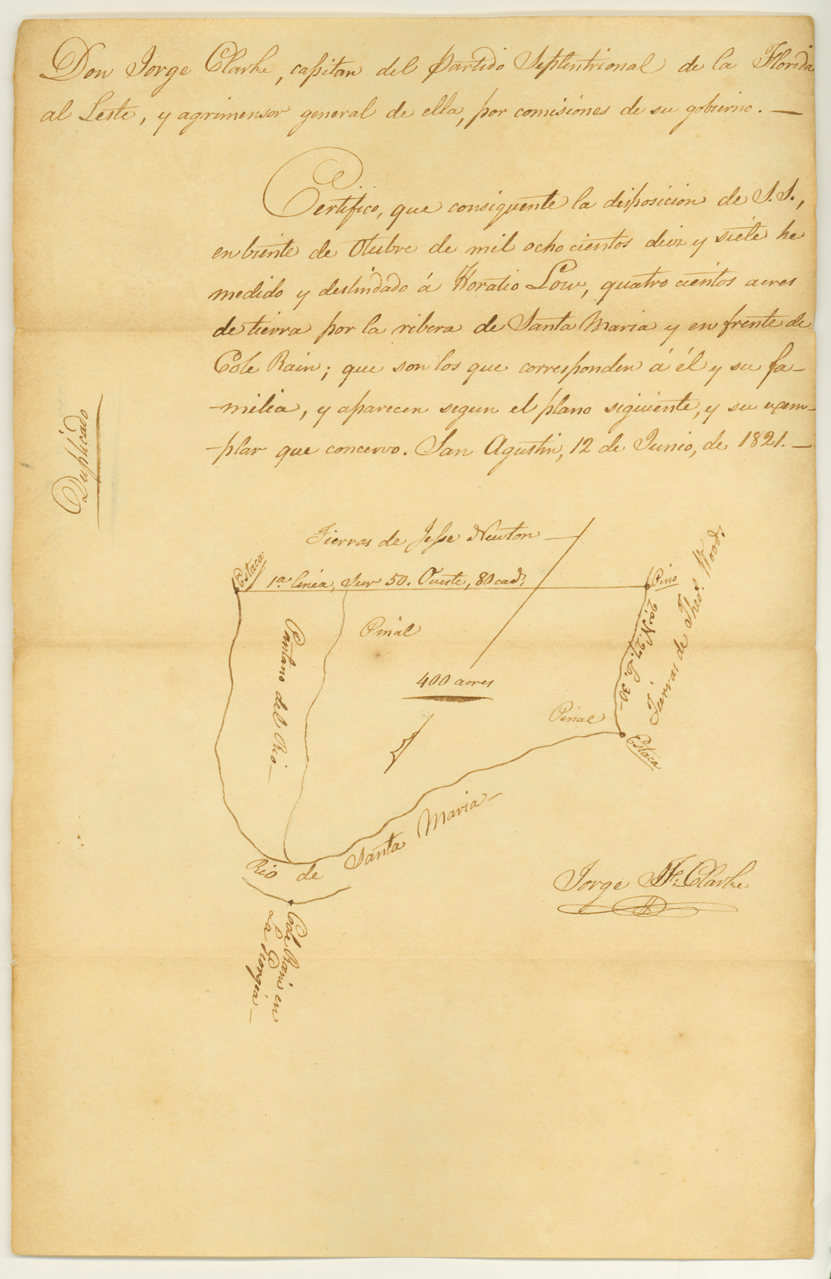 Don Jorge Clarke, capitan del Partido Septentrional de la Florida
al Leste, y agrimensor general de ella, por comisiones de su gobierno. —
Certifico, que consiguente la disposicion de S.S.,
en biente de Otubre de mil ocho cientos diez y siete he
medido y deslindado á Horatio Low, quatro cientos acres
de tierra por la ribera de Santa Maria y en frente de
Cole Rain; que son los que corresponden á él y su fa-
-milia, y aparecen segun el plano siguiente, y su exem-
-plar que concervo. San Agustin, 12 de Junio, de 1821. —
Duplicado
Tierras de Jesse Newton —
Estaca
1a. linea, Sur 50. Oueste, 80 cads.
Pino
Pinal
Pantano del Rio —
2a. N. 27. E. 30 -
Tierras de Theos. Woods
400 acres
Pinal
Estaca
Rio de Santa Maria —
Jorge J. F. Clarke
Cole Rain en
La Georgia —